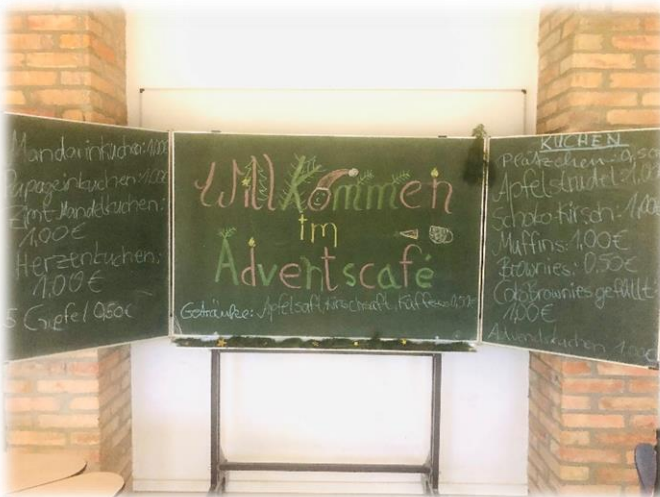 Mandarinkuchen: 1,00€
Papageinkuchen: 1,00€
Zimt-Mandelkuchen:
1,00€
Herzenkuchen:
1,00€
0,50€
Willkommen
im
Adventscafé
Getränke: Apfelsaft, Kirschsaft, Kaffee
KUCHEN
Plätzchen: 0,50€
Apfelstrudel: 1,00
Schoko-Kirsch: 1,00€
Muffins: 1,00€
Brownies: 0,50€
Brownies gefüllt:
1,00€
Adventskuchen 1,00€